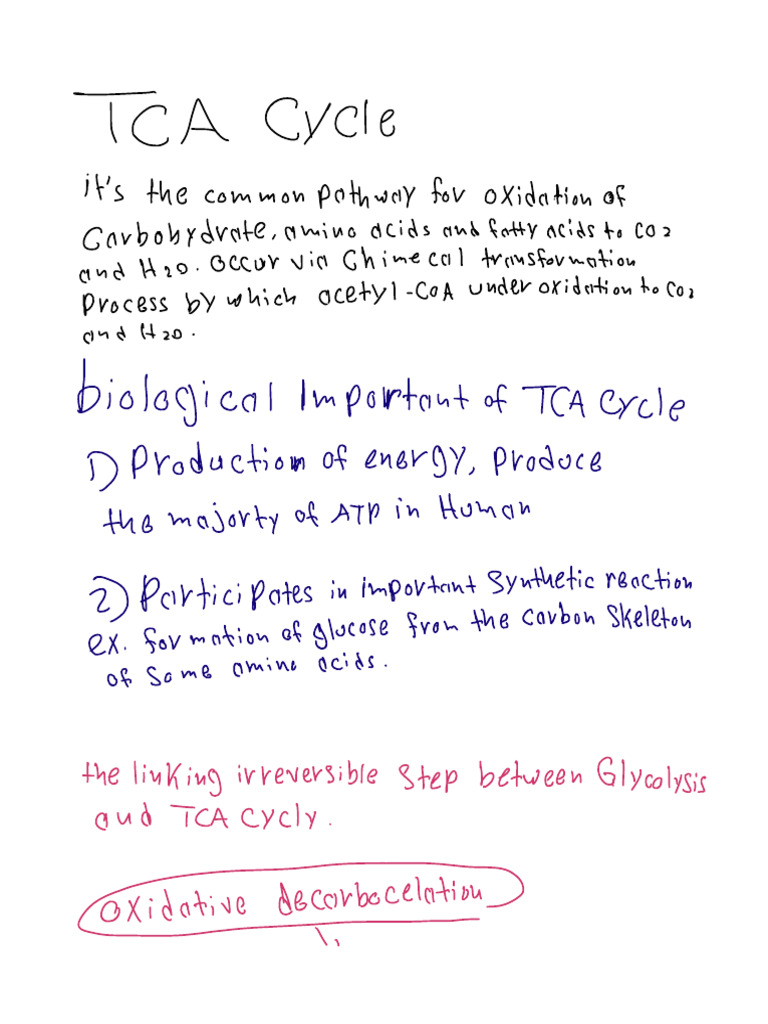 TCA Cycle
it's the common pathway for oxidation of
Carbohydrate, amino acids and fatty acids to CO2
and H2O. Occur via Chimecal transformation
Process by which acetyl-CoA under oxidation to CO2
and H2O.
biological Important of TCA Cycle
1) Production of energy, Produce
the majorty of ATP in Human
2) Participates in important Synthetic reaction
ex. formation of glucose from the carbon Skeleton
of Some amino acids.
the linking irreversible Step between Glycolysis
and TCA Cycly.
Oxidative decarbocelation